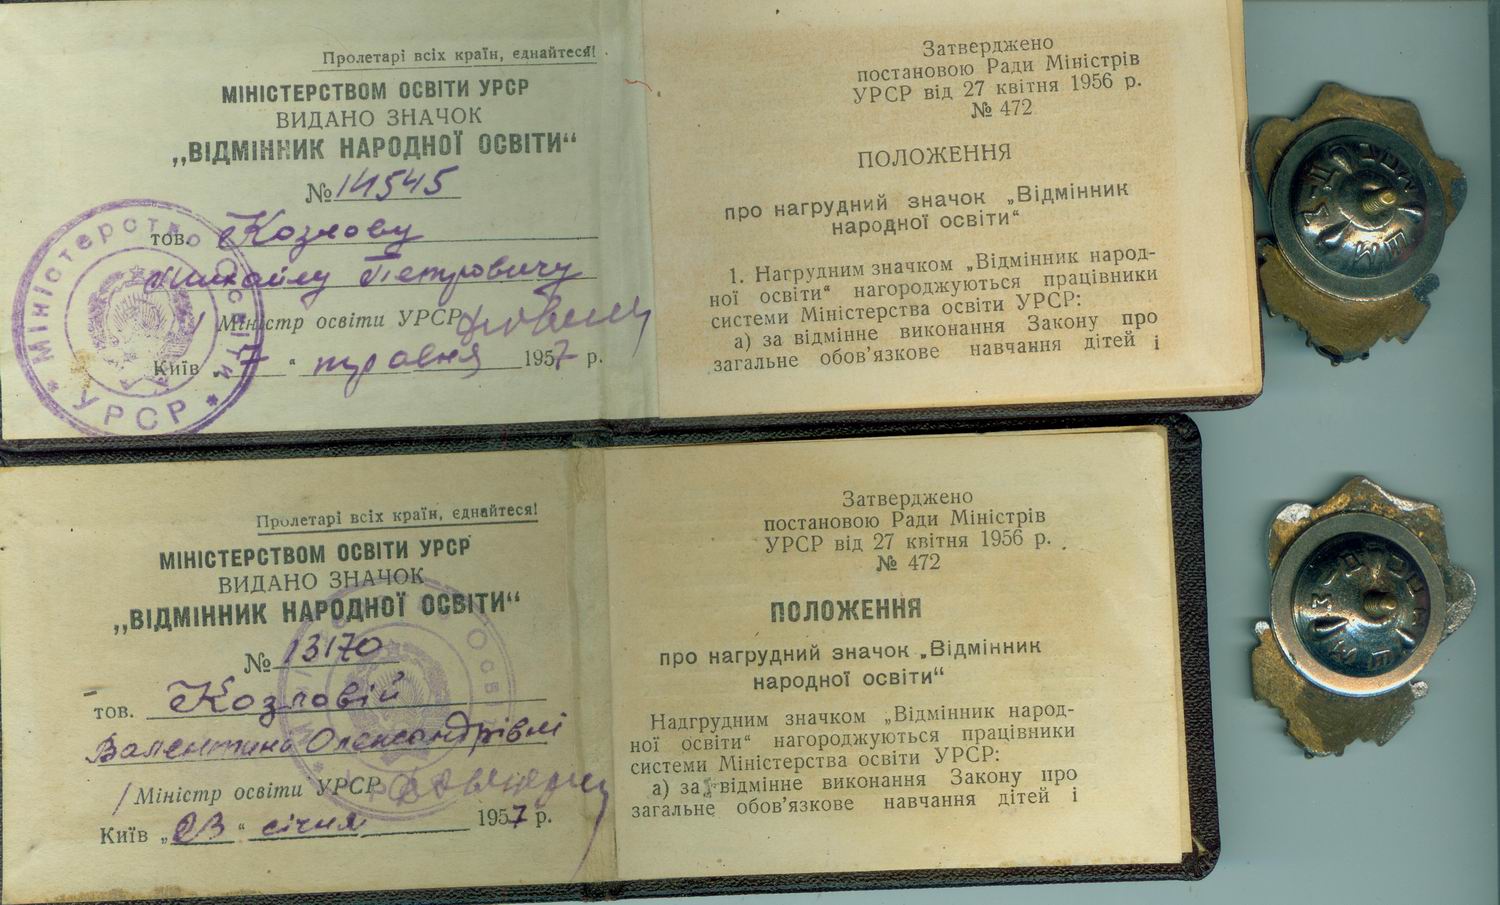 Пролетарі всіх країн, єднайтеся!
МІНІСТЕРСТВОМ ОСВІТИ УРСР
ВИДАНО ЗНАЧОК
„ВІДМІННИК НАРОДНОЇ ОСВІТИ“
№ 14545
тов. Козлову
Михайлу Петровичу
Міністр освіти УРСР
Київ „7“ травня 1957 р.
Міністерство Освіти
* УРСР *
Затверджено
постановою Ради Міністрів
УРСР від 27 квітня 1956 р.
№ 472
ПОЛОЖЕННЯ
про нагрудний значок „Відмінник
народної освіти“
1. Нагрудним значком „Відмінник народ-
ної освіти“ нагороджуються працівники
системи Міністерства освіти УРСР:
а) за відмінне виконання Закону про
загальне обов'язкове навчання дітей і
Пролетарі всіх країн, єднайтеся!
МІНІСТЕРСТВОМ ОСВІТИ УРСР
ВИДАНО ЗНАЧОК
„ВІДМІННИК НАРОДНОЇ ОСВІТИ“
№ 13170
тов. Козловій
Валентині Олександрівні
Міністр освіти УРСР
Київ „23“ січня 1957 р.
Затверджено
постановою Ради Міністрів
УРСР від 27 квітня 1956 р.
№ 472
ПОЛОЖЕННЯ
про нагрудний значок „Відмінник
народної освіти“
Надгрудним значком „Відмінник народ-
ної освіти“ нагороджуються працівники
системи Міністерства освіти УРСР:
а) за відмінне виконання Закону про
загальне обов'язкове навчання дітей і